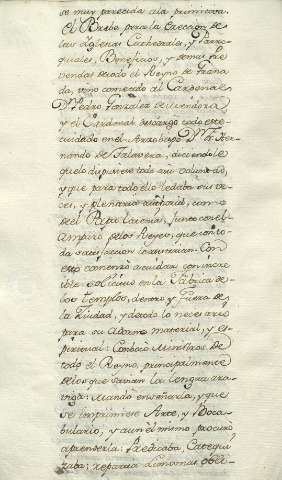 se muy parecida ala primitiva.
El Breve, para la Ereccion de
las Iglesias Cathedrales, y Parro-
quiales, Beneficios, y demas Pre-
vendas de todo el Reyno de Grana-
da, vino cometido al Cardenal
Dn. Pedro Gonzalez de Mendoza
y el Cardenal descargo todo este
cuidado en el Arzobispo Dn. Fr. Her-
nando de Talavera, diciendole
que lo dispusiese todo a su voluntad,
y que para todo ello le daba sus ve-
ces, y plenaria authorid, como
de el Papa la tenia, junto con el
Amparo de los Reyes, que con to-
da satisfacion
esto comenzó a cuidar con incre-
ible solicitud en la Fabrica de
los Templos, dentro y fuera de
la Ciudad, y de todo lo necesario
para su adorno material, y es-
piritual: Condució Ministros de
todo el Reyno, principalmente
de los que sabian la lengua ara-
viga: Mandó enseñarla, y que
se imprimiese Arte, y Voca-
bulario, y aun el mismo procuró
aprenderla: Predicaba, Catequi-
zaba, repartia Limosnas